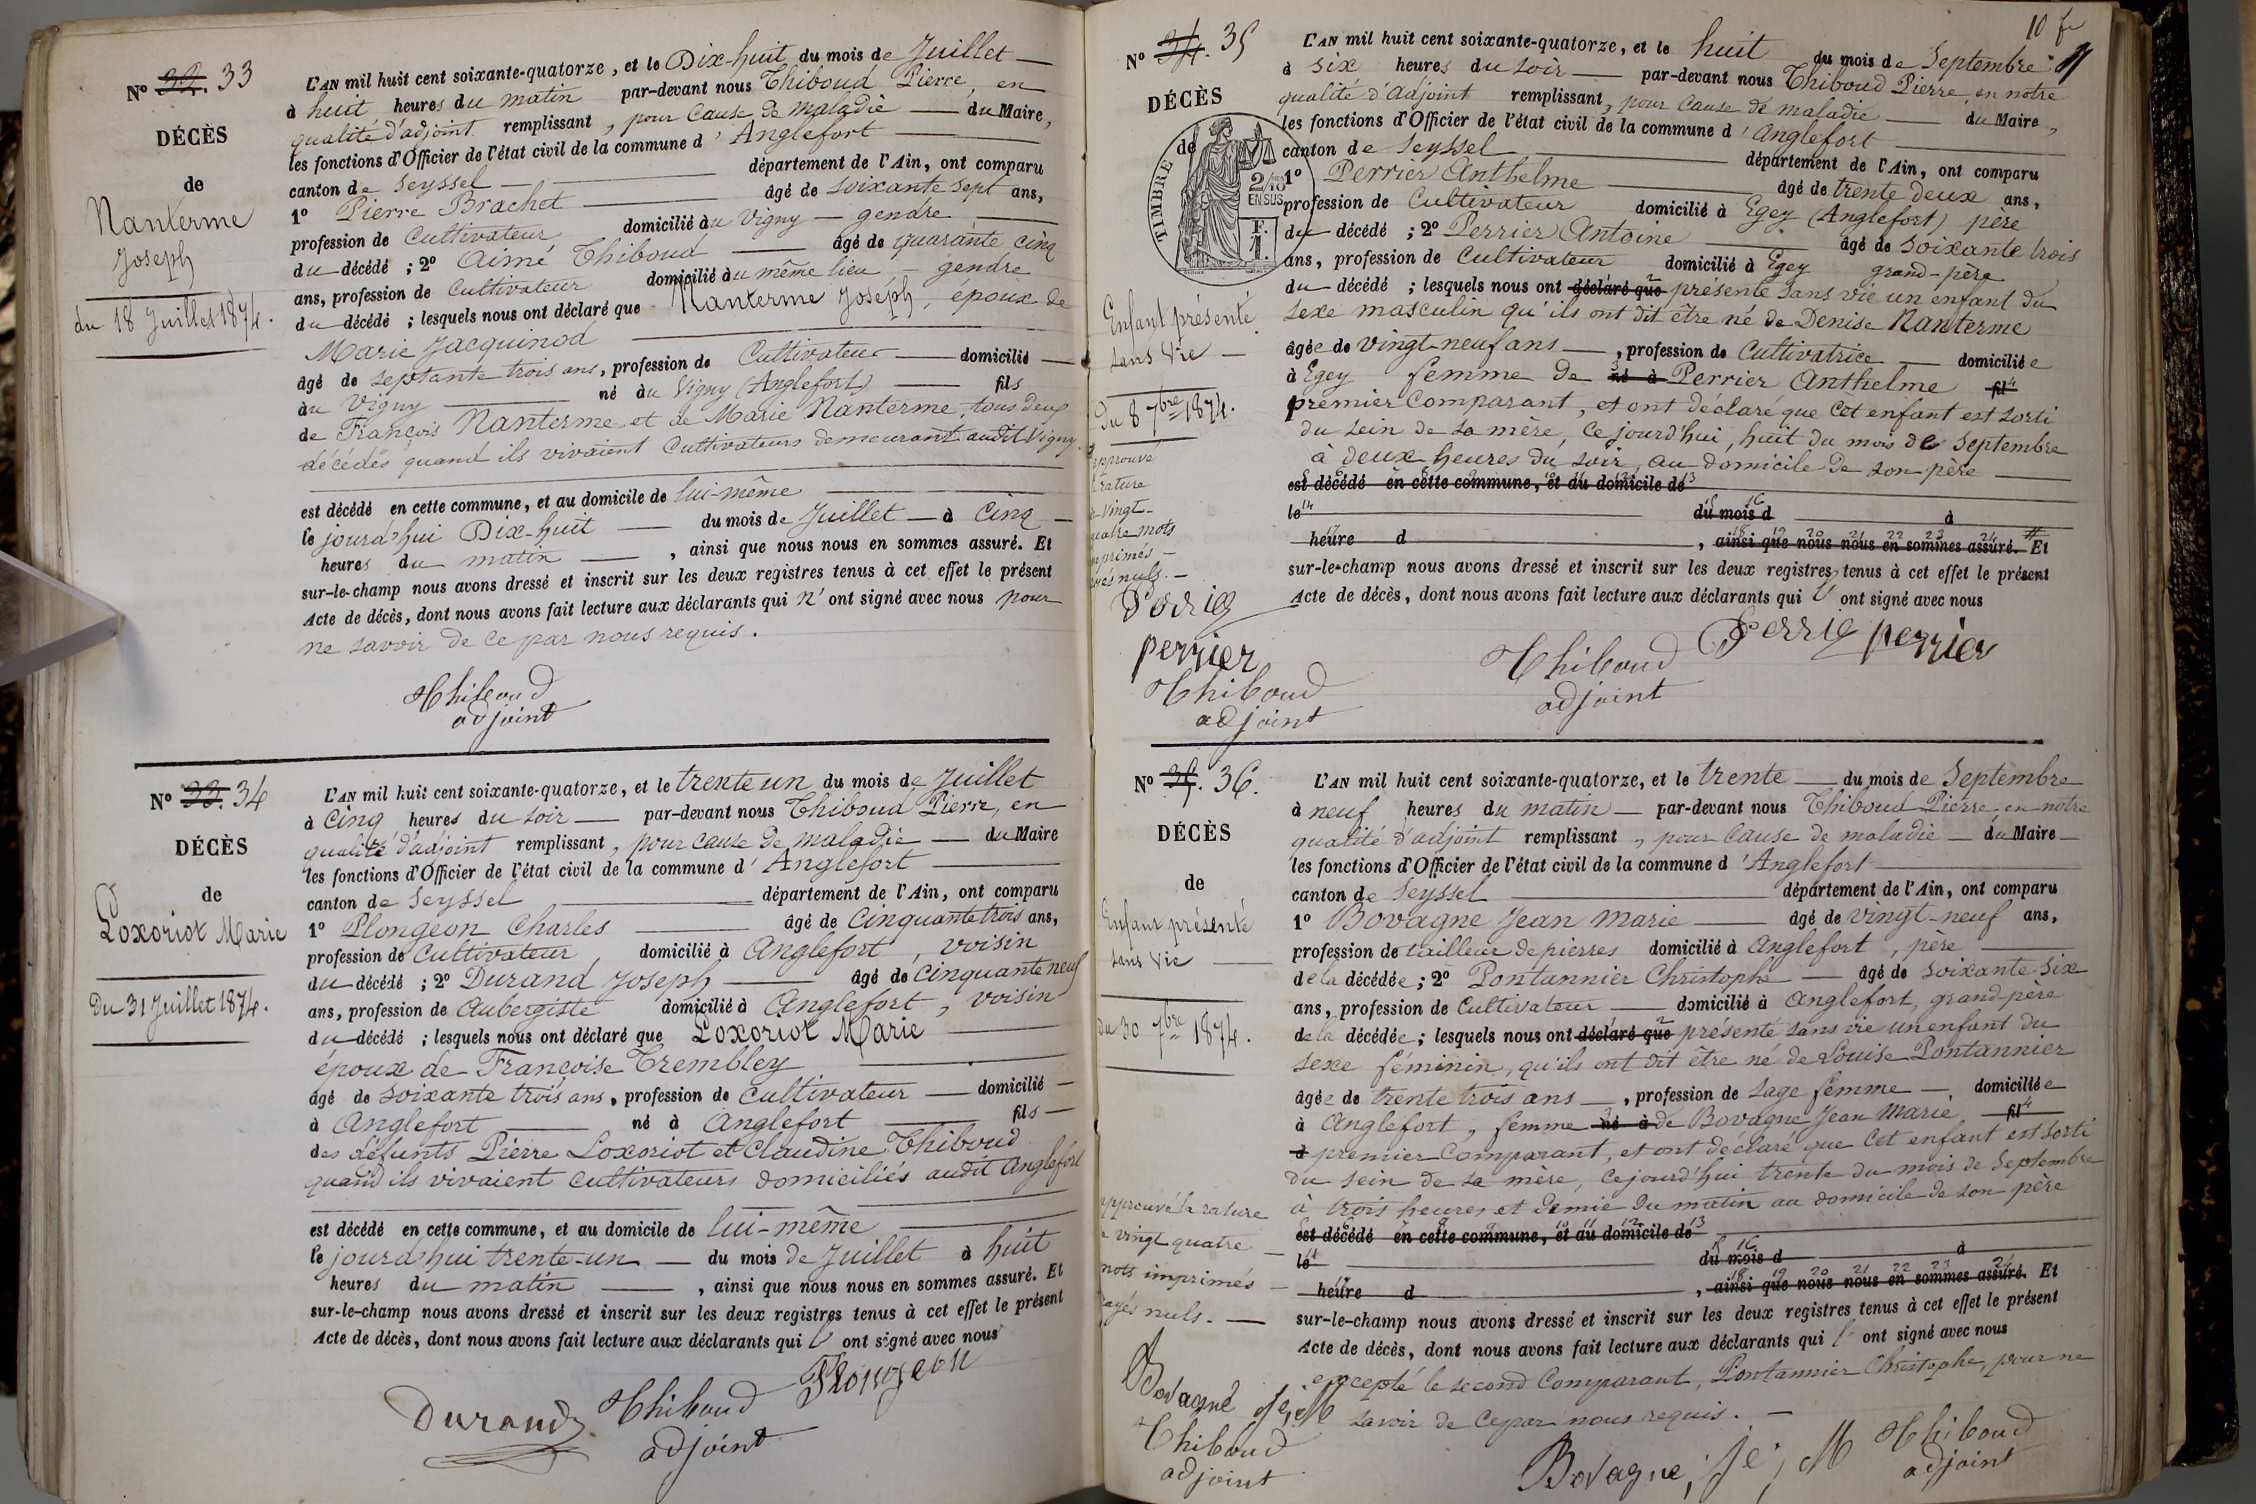 N° 32. 33
DÉCÈS
de
Nanterme
Joseph
du 18 Juillet 1874.
L'AN mil huit cent soixante-quatorze, et le Dix-huit du mois de Juillet
à huit heures du matin par-devant nous Thiboud Pierre, en
qualité d'adjoint remplissant, pour cause de maladie du Maire,
les fonctions d'Officier de l'état civil de la commune d'Anglefort
canton de Seyssel département de l'Ain, ont comparu
1° Pierre Brachet âgé de soixante sept ans,
profession de Cultivateur domicilié au Vigny – gendre
du décédé ; 2° Aimé Thiboud âgé de quarante cinq
ans, profession de Cultivateur domicilié au même lieu, – gendre
du décédé ; lesquels nous ont déclaré que Nanterme Joseph, époux de
Marie Jacquinod
âgé de septante trois ans, profession de Cultivateur domicilié
au Vigny né au Vigny (Anglefort) fils
de François Nanterme et de Marie Nanterme, tous deux
décédés quand ils vivaient Cultivateurs demeurant audit Vigny.
est décédé en cette commune, et au domicile de lui-même
le jourd'hui Dix-huit du mois de Juillet à Cinq
heures du matin, ainsi que nous nous en sommes assuré. Et
sur-le-champ nous avons dressé et inscrit sur les deux registres tenus à cet effet le présent
Acte de décès, dont nous avons fait lecture aux déclarants qui n'ont signé avec nous pour
ne savoir de ce par nous requis.
Thiboud
adjoint
N° 33. 34
DÉCÈS
de
Loxoriot Marie
Du 31 Juillet 1874.
L'AN mil huit cent soixante-quatorze, et le trente un du mois de Juillet
à cinq heures du soir par-devant nous Thiboud Pierre, en
qualité d'adjoint remplissant, pour cause de maladie du Maire
les fonctions d'Officier de l'état civil de la commune d'Anglefort
canton de Seyssel département de l'Ain, ont comparu
1° Plongeon Charles âgé de Cinquante trois ans,
profession de Cultivateur, domicilié à Anglefort, voisin
du décédé ; 2° Durand Joseph âgé de cinquante neuf
ans, profession de Aubergiste domicilié à Anglefort, voisin
du décédé ; lesquels nous ont déclaré que Loxoriot Marie
époux de Françoise Trembley
âgé de soixante trois ans, profession de Cultivateur domicilié
à Anglefort né à Anglefort fils
des défunts Pierre Loxoriot et Claudine Thiboud
quand ils vivaient cultivateurs domiciliés audit Anglefort
est décédé en cette commune, et au domicile de lui-même
le jourd'hui trente-un du mois de Juillet à huit
heures du matin, ainsi que nous nous en sommes assuré. Et
sur-le-champ nous avons dressé et inscrit sur les deux registres tenus à cet effet le présent
Acte de décès, dont nous avons fait lecture aux déclarants qui ont signé avec nous
Durand Thiboud Plongeon
adjoint
10 fe
N° 34. 35
DÉCÈS
de
TIMBRE
2/10
EN SUS
F.
1.
Enfant présenté
sans Vie
Du 8 7bre 1874.
approuvé
rature
vingt-
quatre mots
imprimés
nuls.
Perrier
perrier
Thiboud
adjoint
L'AN mil huit cent soixante-quatorze, et le huit du mois de Septembre
à six heures du soir par-devant nous Thiboud Pierre, en notre
qualité d'adjoint remplissant, pour cause de maladie du Maire,
les fonctions d'Officier de l'état civil de la commune d'Anglefort
canton de Seyssel département de l'Ain, ont comparu
1° Perrier Anthelme âgé de trente deux ans,
profession de Cultivateur domicilié à Egey (Anglefort) père
du décédé ; 2° Perrier Antoine âgé de soixante trois
ans, profession de Cultivateur domicilié à Egey grand-père
du décédé ; lesquels nous ont déclaré que présenté sans vie un enfant du
sexe masculin qu'ils ont dit être né de Denise Nanterme
âgée de vingt-neuf ans, profession de Cultivatrice domiciliée
à Egey femme de né à Perrier Anthelme fil
premier Comparant, et ont déclaré que cet enfant est sorti
du sein de sa mère, ce jourd'hui, huit du mois de Septembre
à deux heures du soir, au domicile de son père
est décédé en cette commune, et du domicile de
le du mois d à
heure d , ainsi que nous nous en sommes assuré. Et
sur-le-champ nous avons dressé et inscrit sur les deux registres tenus à cet effet le présent
Acte de décès, dont nous avons fait lecture aux déclarants qui ont signé avec nous
Thiboud Perrier perrier
adjoint
N° 35. 36.
DÉCÈS
de
Enfant présenté
sans Vie
du 30 7bre 1874.
approuvé la rature
vingt quatre
mots imprimés
rayés nuls.
Bovagne Je, M
Thiboud
adjoint
L'AN mil huit cent soixante-quatorze, et le trente du mois de Septembre
à neuf heures du matin par-devant nous Thiboud Pierre, en notre
qualité d'adjoint remplissant, pour cause de maladie du Maire
les fonctions d'Officier de l'état civil de la commune d'Anglefort
canton de Seyssel département de l'Ain, ont comparu
1° Bovagne Jean Marie âgé de vingt-neuf ans,
profession de tailleur de pierres domicilié à Anglefort, père
de la décédée ; 2° Pontannier Christophe âgé de soixante-six
ans, profession de Cultivateur domicilié à Anglefort, grand-père
de la décédée ; lesquels nous ont déclaré que présenté sans vie un enfant du
sexe féminin, qu'ils ont dit être né de Louise Pontannier
âgée de trente trois ans, profession de sage femme, domiciliée
à Anglefort, femme né à de Bovagne Jean Marie, fil
premier Comparant, et ont déclaré que cet enfant est sorti
du sein de sa mère, ce jourd'hui trente du mois de Septembre
à trois heures et demie du matin au domicile de son père
est décédé en cette commune, et au domicile de
le du mois d à
heure d , ainsi que nous nous en sommes assuré. Et
sur-le-champ nous avons dressé et inscrit sur les deux registres tenus à cet effet le présent
Acte de décès, dont nous avons fait lecture aux déclarants qui ont signé avec nous
excepté le second Comparant, Pontannier Christophe, pour ne
savoir de ce par nous requis.
Bovagne, Je, M Thiboud
adjoint